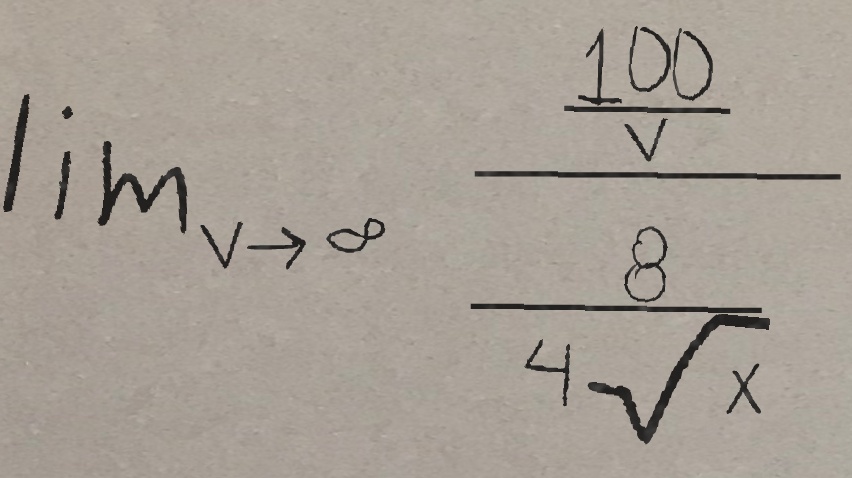 lim v→∞ (100/v)/(8/(4√x))